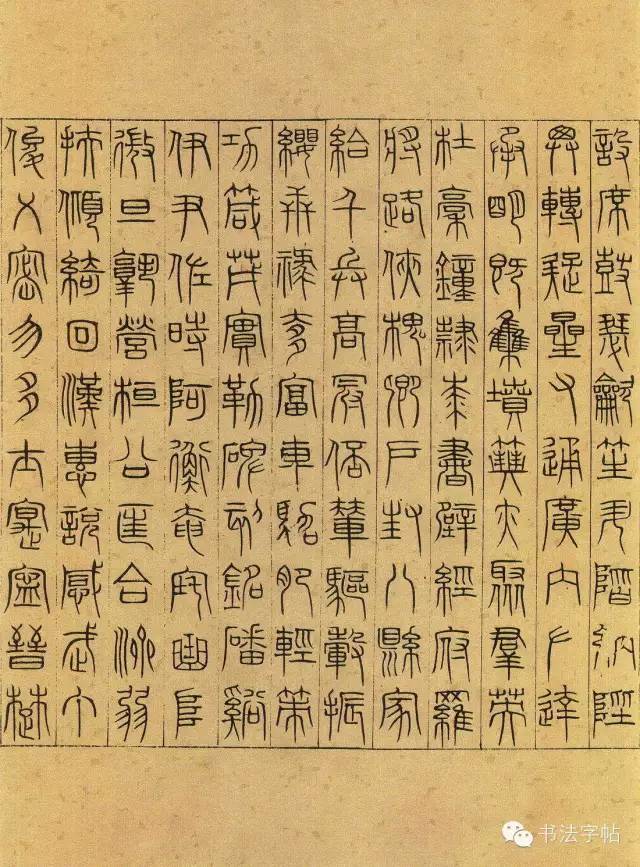 設席鼓瑟龡笙升階納陛
弁轉疑星右通廣內左達
承明既集墳典亦聚羣英
杜稾鐘隸漆書壁經府羅
將路俠槐卿戶封八縣家
給千兵高冠陪輦驅轂振
纓世祿侈富車駕肥輕策
功茂實勒碑刻銘磻谿
伊尹佐時阿衡奄宅曲阜
微旦孰營桓公匡合濟弱
扶傾綺回漢惠說感武丁
俊乂密勿多士寔寧晉楚
书法字帖